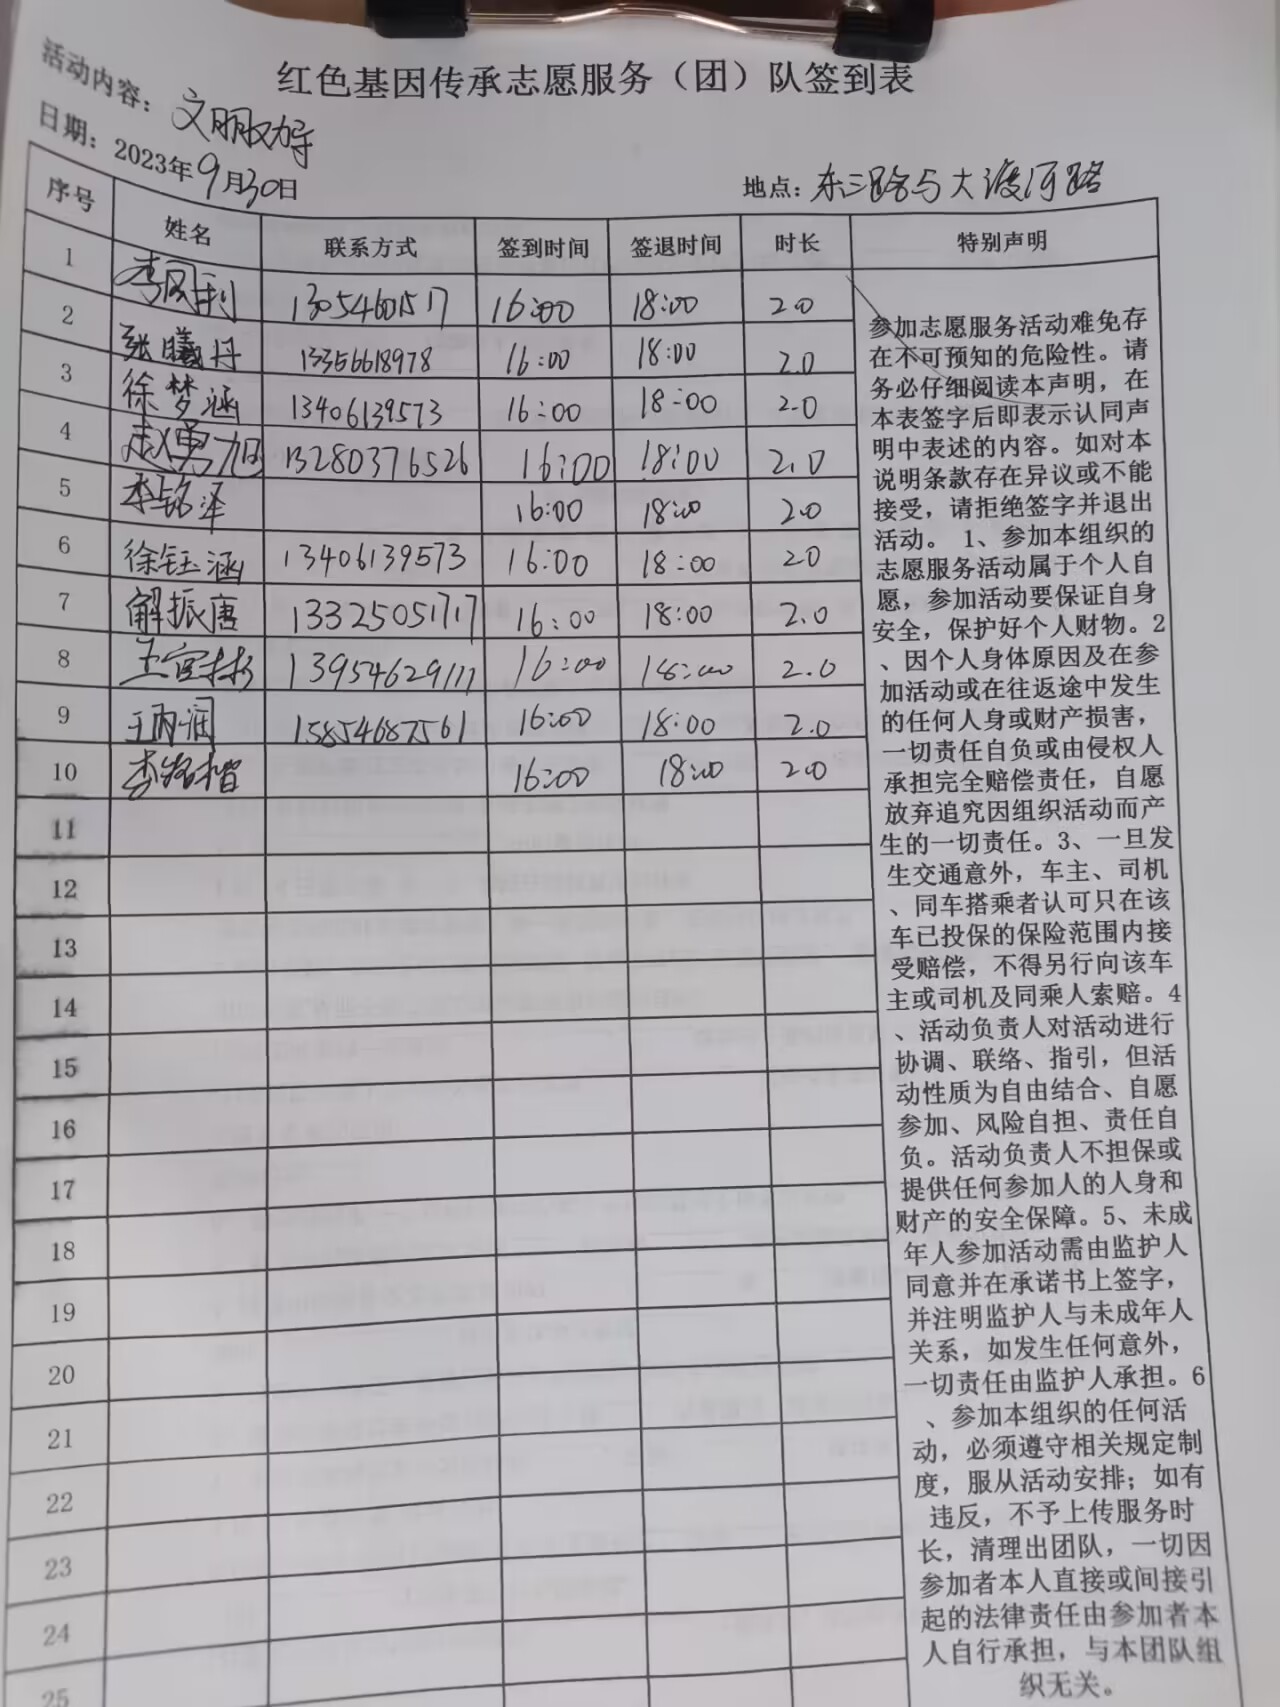 红色基因传承志愿服务（团）队签到表
活动内容：文明劝导
日期：2023年9月30日
地点：东二路与大渡河路
序号 姓名 联系方式 签到时间 签退时间 时长 特别声明
1 13054601517 16:00 18:00 2.0
2 张曦丹 13356618978 16:00 18:00 2.0
3 徐梦涵 13406139573 16:00 18:00 2.0
4 赵勇旭 13280376526 16:00 18:00 2.0
5 李铭泽 16:00 18:00 2.0
6 徐钰涵 13406139573 16:00 18:00 2.0
7 解振唐 13325051717 16:00 18:00 2.0
8 王宫彬 13954629111 16:00 18:00 2.0
9 王雨润 15854687561 16:00 18:00 2.0
10 李铭楷 16:00 18:00 2.0
11
12
13
14
15
16
17
18
19
20
21
22
23
24
25
参加志愿服务活动难免存
在不可预知的危险性。请
务必仔细阅读本声明，在
本表签字后即表示认同声
明中表述的内容。如对本
说明条款存在异议或不能
接受，请拒绝签字并退出
活动。 1、参加本组织的
志愿服务活动属于个人自
愿，参加活动要保证自身
安全，保护好个人财物。2
、因个人身体原因及在参
加活动或在往返途中发生
的任何人身或财产损害，
一切责任自负或由侵权人
承担完全赔偿责任，自愿
放弃追究因组织活动而产
生的一切责任。3、一旦发
生交通意外，车主、司机
、同车搭乘者认可只在该
车已投保的保险范围内接
受赔偿，不得另行向该车
主或司机及同乘人索赔。4
、活动负责人对活动进行
协调、联络、指引，但活
动性质为自由结合、自愿
参加、风险自担、责任自
负。活动负责人不担保或
提供任何参加人的人身和
财产的安全保障。5、未成
年人参加活动需由监护人
同意并在承诺书上签字，
并注明监护人与未成年人
关系，如发生任何意外，
一切责任由监护人承担。6
、参加本组织的任何活
动，必须遵守相关规定制
度，服从活动安排；如有
违反，不予上传服务时
长，清理出团队，一切因
参加者本人直接或间接引
起的法律责任由参加者本
人自行承担，与本团队组
织无关。